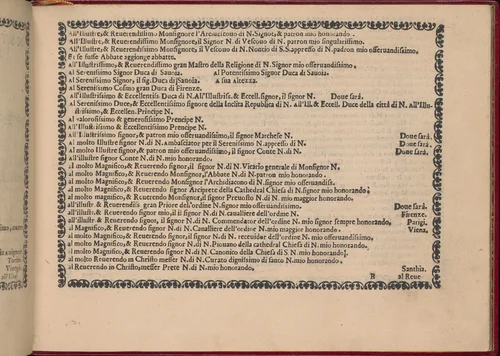 All'Illustre, & Reuerendissimo Monsignore l'Arciuescouo di N. Signor, & patron mio honorando.
All'Illustre, & Reuerendissimo Monsignore, il Signor N. di Vescouo di N. patron mio singularissimo.
All'Illustre, & Reuerendissimo Monsignore, il Vescouo di N. Nontio di S.S. appresso di N. padron mio osseruandissimo,
Et se fusse Abbate aggionge abbatte.
All'Illustrissimo, & Reuerendissimo gran Mastro della Religione di N. Signor mio osseruandissimo.
al Serenissimo Signor Duca di Sauoia. Al Potentissimo Signor Duca di Sauoia.
al Serenissimo Signor, il sig. Duca di Sauoia. A sua altezza.
al Serenissimo Cosmo gran Duca di Firenze.
all'Illustrissimo & Eccellentiss Duca di N. All'Illustriss. & Eccell. signor, il signor N. Doue sarà.
al Serenissimo Duce, & Eccellentissimo signore della Inclita Republica di N. All'Ill. & Eccell. Duce della città di N. All'Illu
strissimo & Eccellen. Principe N.
Al valorosissimo & generosissimo Prencipe N.
All'Illustrissimo & Eccellentissimo Prencipe N.
All'Illustrissimo signore, & patron mio osseruandissimo, il signor Marchese N. Doue sarà.
al molto Illustre signor N. di Ambasciatore per il Serenissimo N. appresso di N. Doue sarà.
al molto Illustre signor, & patron mio osseruandissimo, il signor Conte N. di N. Doue sarà,
All'illustre signor Conte N. di N. mio honorando.
al molto Magnifico, & Reuerendo signor, il signor N. di N. Vicario generale di Monsignor N.
al molto Magnifico, & Reuerendo Monsignor, l'Abbate N. di N. patron mio honorando.
al molto Magnifico, & Reuerendo Monsignor l'Archidiacono di N. signor mio osseruandiss.
al molto Magnifico, & Reuerendo signor Arciprete della Cathedral Chiesa di N. signor mio honorando.
al molto magnifico, & molto Reuerendo Monsignor, il signor Preuosto N. di N. mio maggior honorando.
all'illustr. & Reuerendiss. gran Priore dell'ordine N. signor mio osseruandissimo. Doue sarà.
all'illustr. & Reuerendo signor mio, il il signor N. di N. caualliere dell'ordine N. Firenze.
all'illustr. & Reuerendo signor, il signor N. di N. Commendatore dell'ordine di N. mio signor sempre honorando, Parigi.
al Magnifico, & Reuerendo signor N. di N. Caualliere dell'ordine N. mio maggior honorando. Viena.
al molto Magnifico, & Reuerendo signor, il signor N. di N. receuidor dell'ordine N. mio osseruandissimo,
al molto Magnifico, & Reuerendo signor N. di N. Piouano della cathedral Chiesa di N. mio honorando,
al molto Magnifico, & Reuerendo signor N. di N. Canonico della Chiesa di S. N. mio honorando.
al molto Reuerendo in Christo messer N. di N. Curato dignissimo di santo N. mio honorando.
al Reuerendo in Christo, messer Prete N. di N. mio honorando, Santhia.
B al Reue